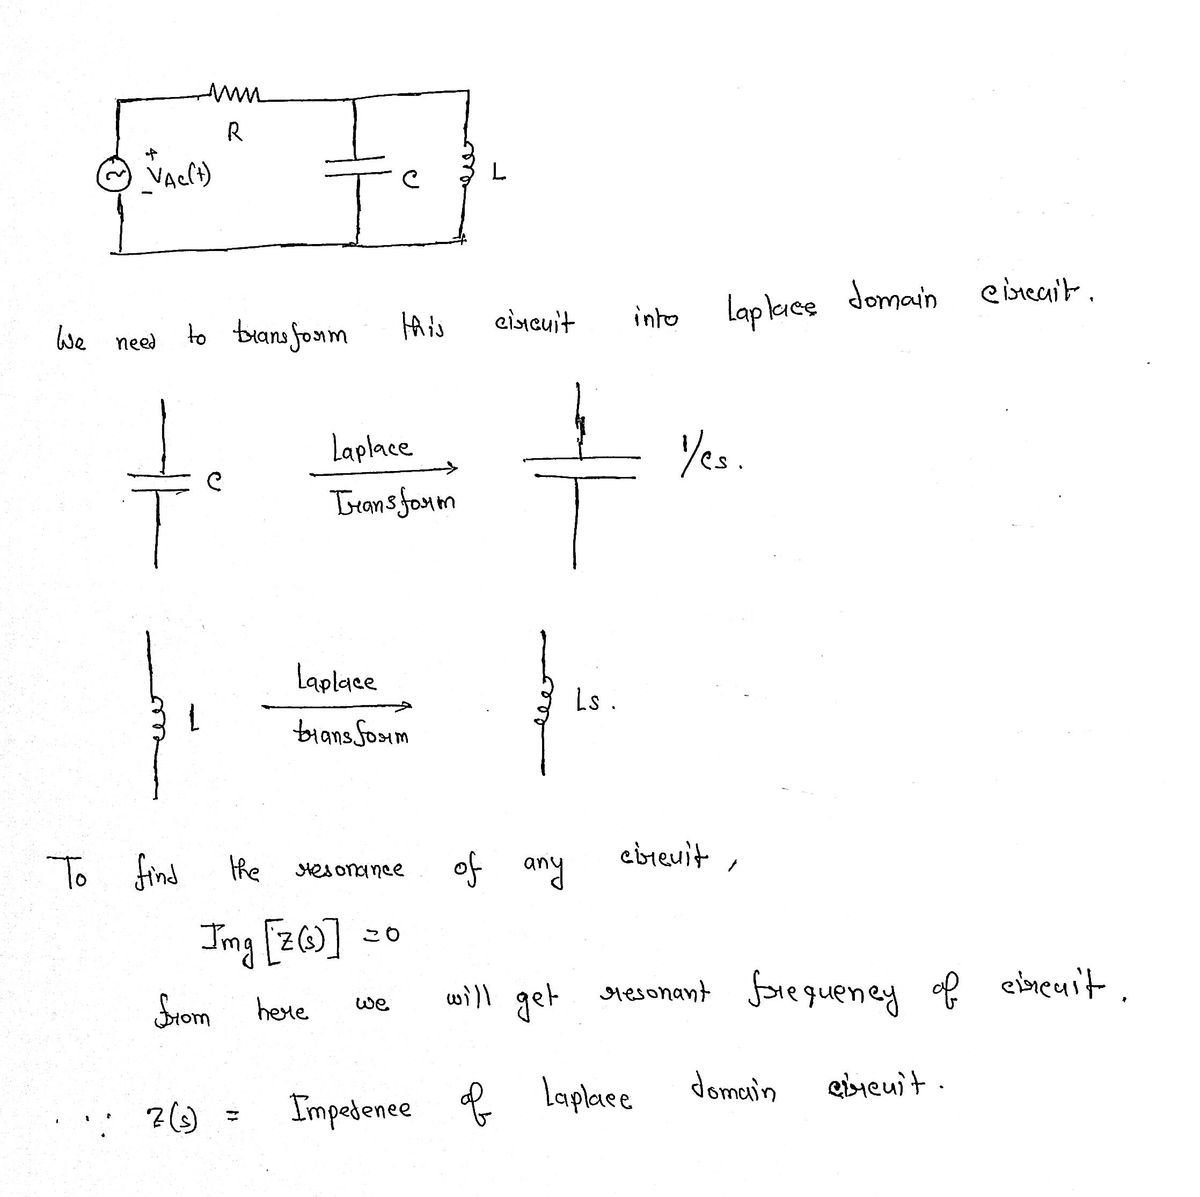 R
+
VAC(t)
-
C
L
We need to transform this circuit into Laplace domain circuit.
C
Laplace
Transform
1/cs.
L
Laplace
transform
Ls.
To find the resonance of any circuit,
Img [Z(s)] = 0
from here we will get resonant frequency of circuit.
∵ Z(s) = Impedence of Laplace domain circuit.